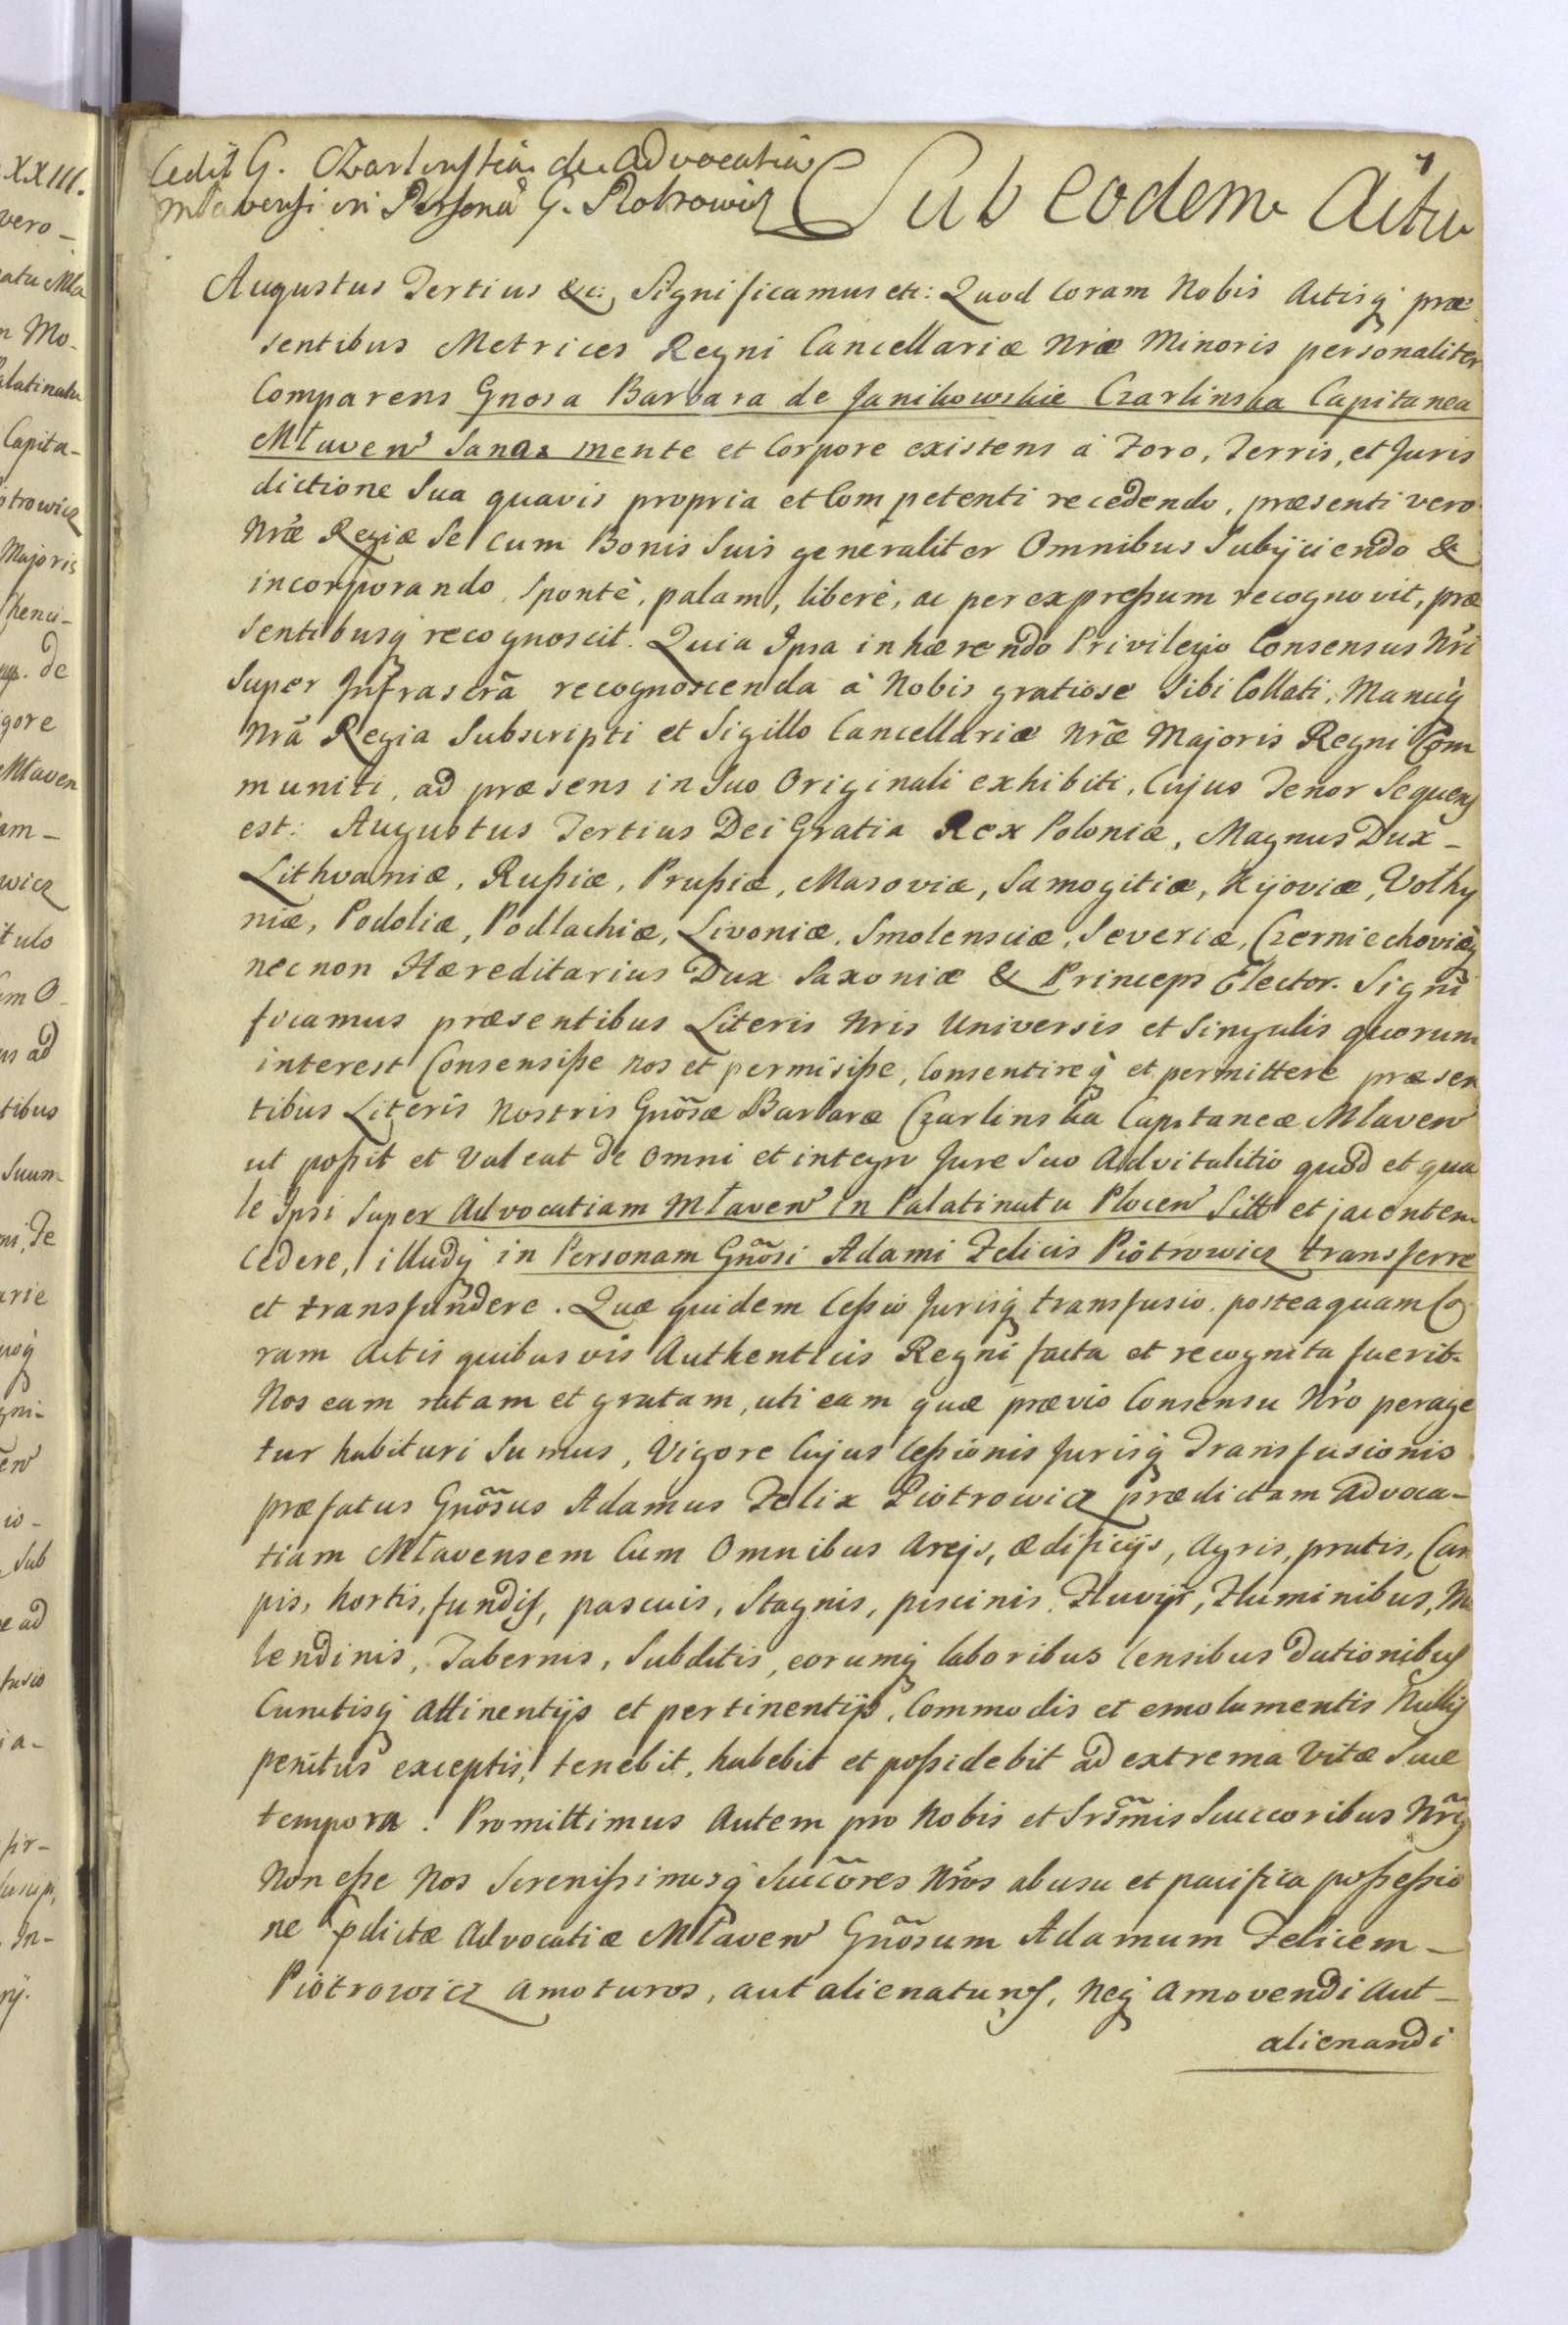 XXIII.
vero_
atu Mła
n Mo_
alatinatu
Capita_
otrowicz
Majoris
de
gore
Młaven
wicz
tulo
im O_
us ad
tibus
Suum
arie
gni_
io_
Sub
e ad
fusio
ia_
fir_
In_
Cedit G. Czarlinska de Advocatia
Mlavensi in Personã G. Piotrowicz
Sub eodem Actu
1
Augustus Tertius &c: Significamus etc: Quod Coram Nobis Actisq́ præ
sentibus Metrices Regni Cancellariæ Nræ Minoris personaliter
Comparens Gnosa Barbara de Janikowskie Czarlinska Capitanea
Młaven Sana mente et Corpore existens à Foro, Terris, et Juris
dictione Sua quavis propria et Competenti recedendo, præsenti vero
Nræ Regiæ Se cum Bonis Suis generaliter Omnibus Subijciendo &
incorporando, Spontè, palam, liberè, ac per expreſsum recognovit, præ
sentibusq́ recognoscit. Quia Ipsa inhærendo Privilegio Consensus Nri
Super Infrascrã recognoscenda à Nobis gratiose Sibi Collati, Manuq́
Nrã Regia Subscripti et Sigillo Cancellariæ Nræ Majoris Regni Com
muniti, ad præsens in Suo Originali exhibiti, Cujus Tenor Sequens
est: Augustus Tertius Dei Gratia Rex Poloniæ, Magnus Dux_
Lithvaniæ, Ruſsiæ, Pruſsiæ, Masoviæ, Samogitiæ, Kijoviæ, Volhy
niæ, Podoliæ, Podlachiæ, Livoniæ, Smolensciæ, Severiæ, Czerniechoviæq́
necnon Hæreditarius Dux Saxoniæ & Princeps Elector. Signi
ficamus præsentibus Literis Nris Universis et Singulis quorum
interest Consensiſse nos et permisiſse, Consentireq́ et permittere præsen
tibus Literis Nostris Gnõsæ Barbaræ Czarlinska Capitaneæ Mlaven
ut poſsit et Valeat de Omni et integro Jure Suo Advitalitio quod et qua
le Ipsi Super Advocatiam Młaven in Palatinatu Plocen Sitt et jacentem
Cedere, illudq́ in Personam Gnõsi Adami Felicis Piotrowicz transferre
et transfundere. Quæ quidem Ceſsio Jurisq́ transfusio posteaquam Co
ram Actis quibusvis Authenticis Regni facta et recognita fuerit.
Nos eam ratam et gratam, uti eam quæ prævio Consensu Nro perage
tur habituri Sumus, Vigore Cujus Ceſsionis Jurisq́ Transfusionis
præfatus Gnõsus Adamus Felix Piotrowicz prædictam Advoca_
tiam Młavensem Cum Omnibus Arejs, ædificijs, Agris, pratis, Cam
pis, hortis, fundis, pascuis, Stagnis, piscinis, Fluvijs, Fluminibus, Mo
lendinis, Tabernis, Subditis, eorumq́ laboribus Censibus Dationibus
Cunctisq́ Attinentijs et pertinentijs, Commodis et emolumentis Nullis
penitus exceptis, tenebit, habebit et poſsidebit ad extrema Vitæ Suæ
tempora. Promittimus Autem pro Nobis et Srs̃mis Succoribus Nrĩs
Non eſse Nos Sereniſsimosq́ Succõres Nros ab usu et pacifica poſseſsio
ne p̃dictæ Advocatiæ Młaven Gnõsum Adamum Felicem_
Piotrowicz Amoturos, aut alienaturos, Neq́ Amovendi Aut_
alienandi